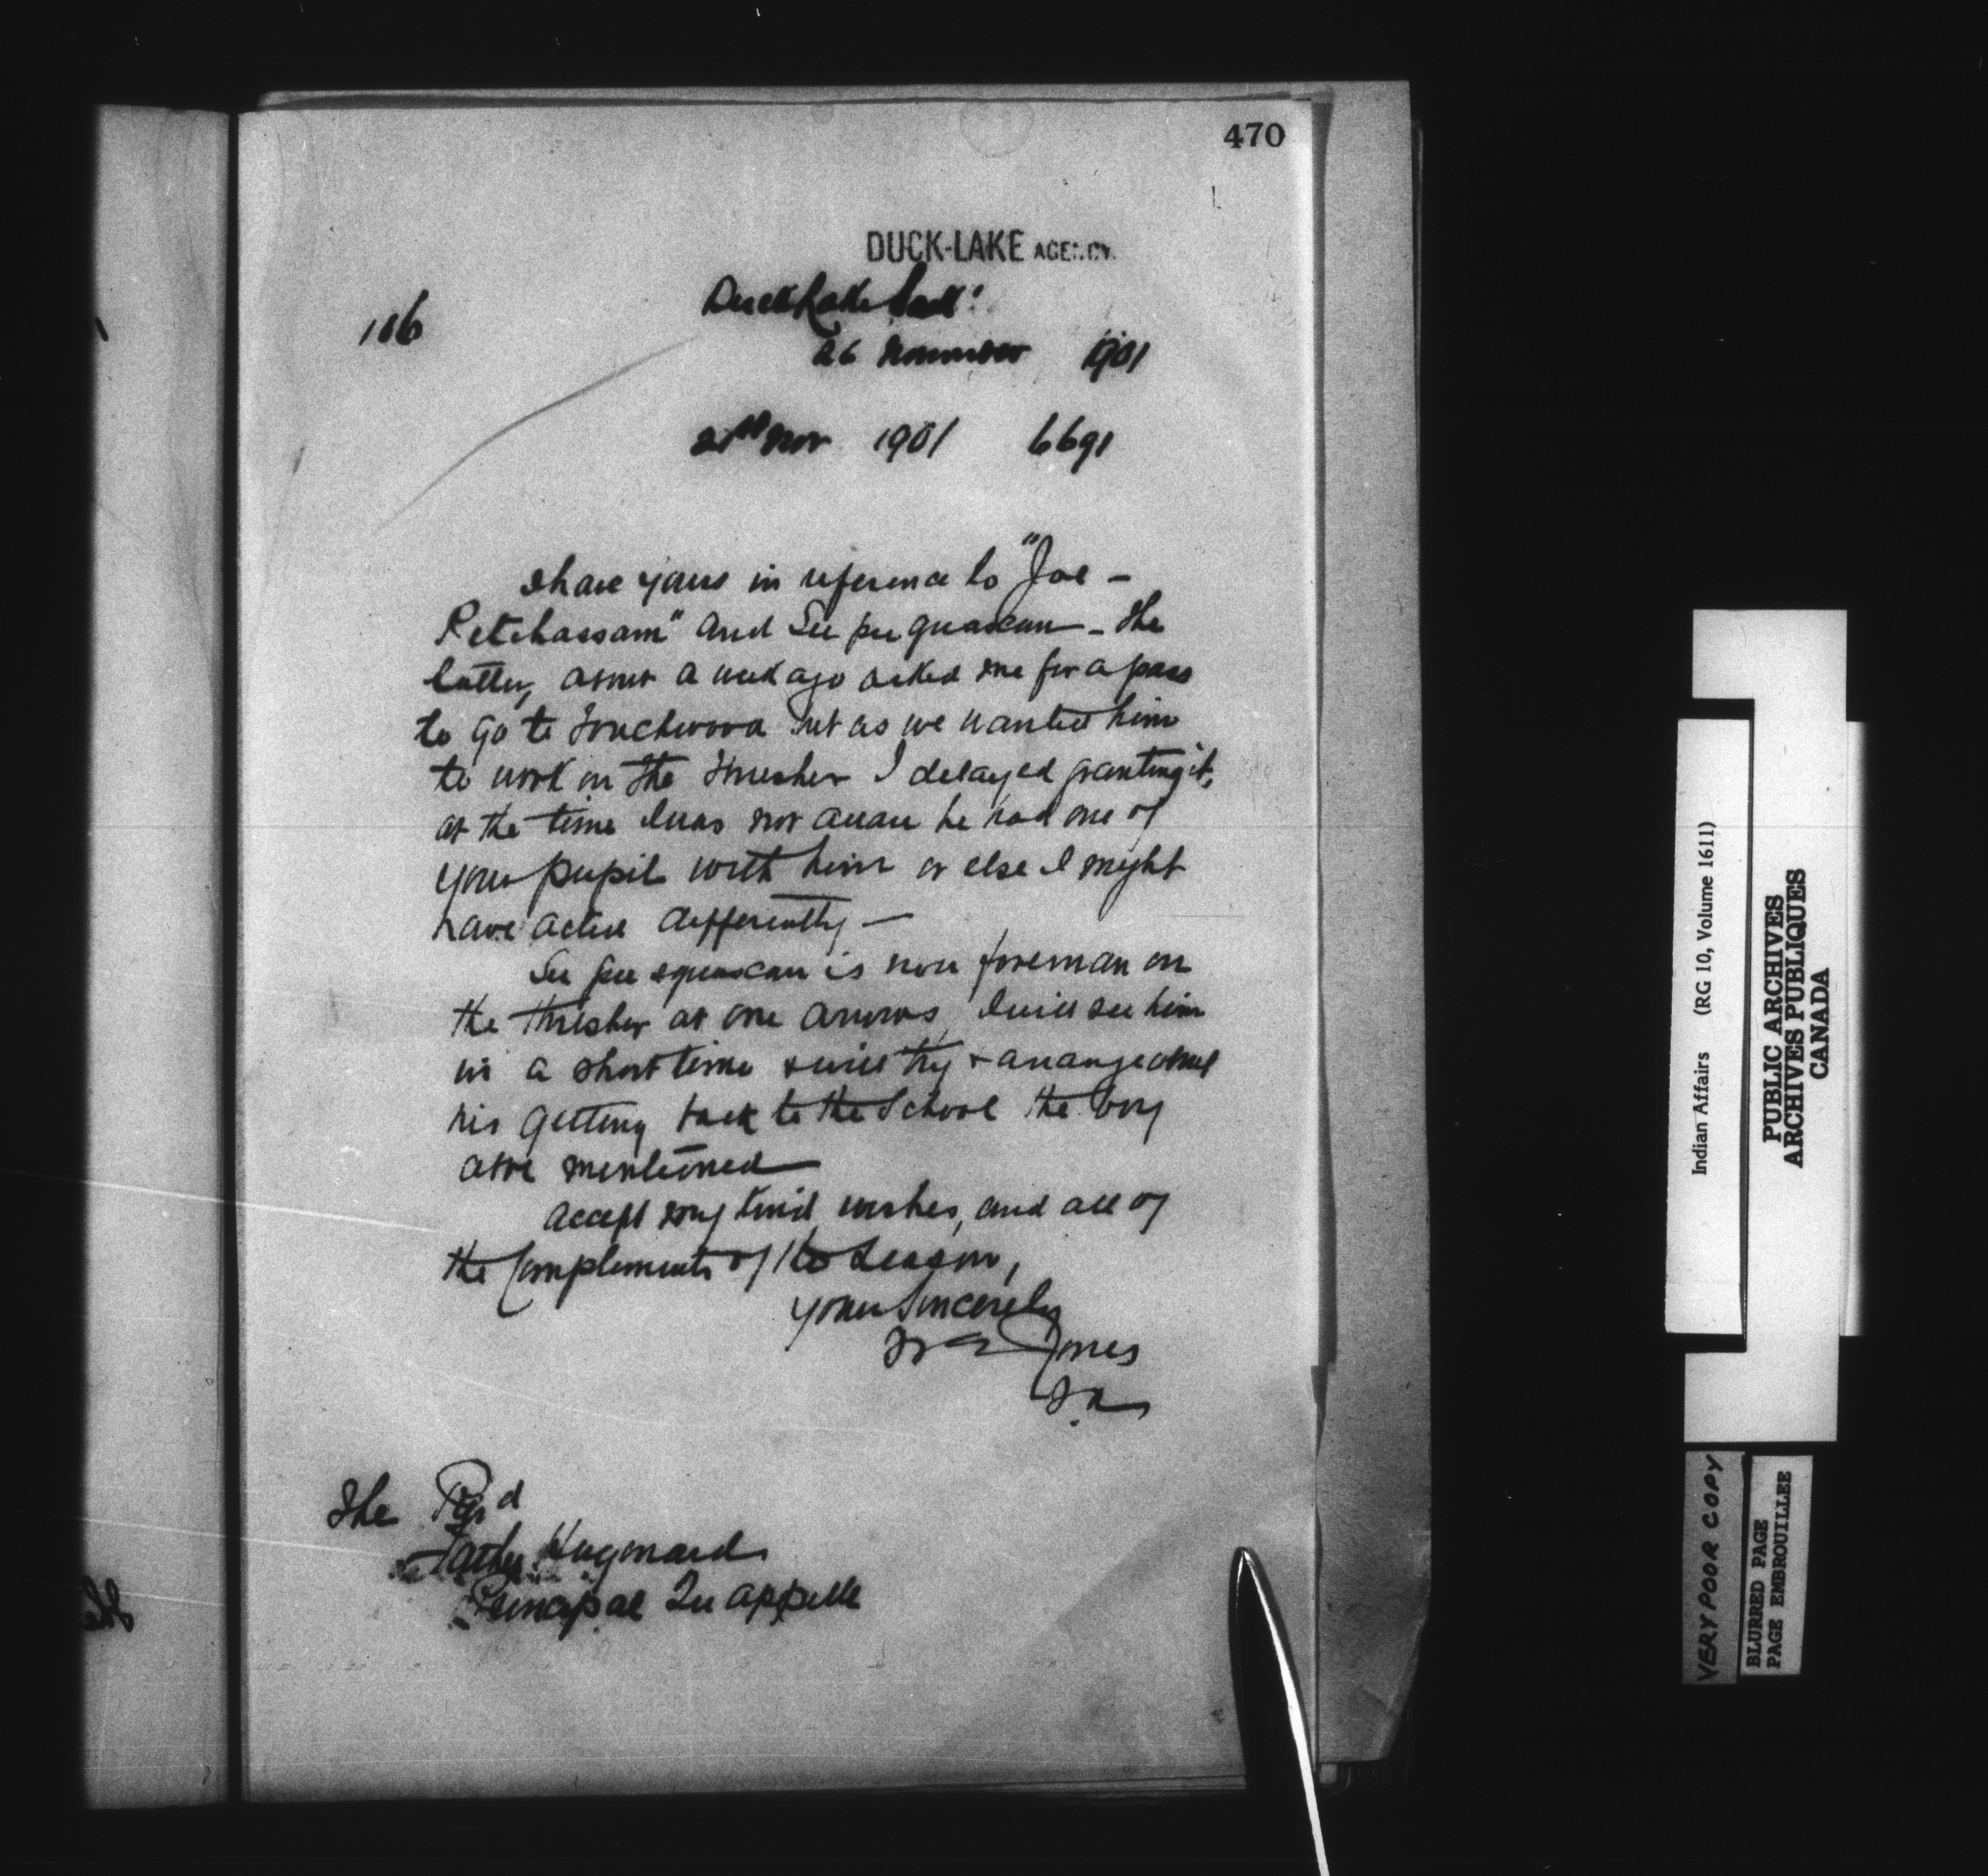 470
DUCK-LAKE AGENCY.
Duck Lake Sask:
106
26 November 1901
21st Nov 1901 6691
I have yours in reference to "Joe -
Petchassam" and See pee quascan - the
latter, about a week ago asked me for a pass
to go to Touchwood but as we wanted him
to work on the Thresher I delayed granting it,
at the time I was not aware he had one of
your pupils with him or else I might
have acted differently —
See pee squascan is now foreman on
the thresher at One Arrows, I will see him
in a short time & will try & arrange about
his getting back to the School the boy
above mentioned
accept my kind wishes, and all of
the Compliments of the Season,
Yours Sincerely
Jones
The Revd
Father Hugonard
Principal Qu appelle
The
Indian Affairs (RG 10, Volume 1611)
PUBLIC ARCHIVES
ARCHIVES PUBLIQUES
CANADA
VERY POOR COPY
BLURRED PAGE
PAGE EMBROUILLEE